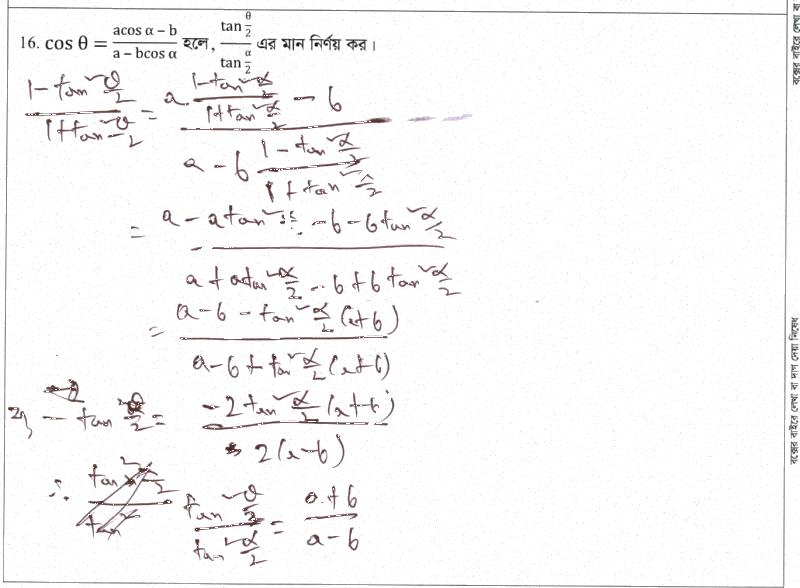 16. cos θ = (acos α – b)/(a – bcos α) হলে, (tan θ/2)/(tan α/2) এর মান নির্ণয় কর।
(1 - tan²θ/2)/(1 + tan²θ/2) = (a · (1 - tan²α/2)/(1 + tan²α/2) - b)/(a - b (1 - tan²α/2)/(1 + tan²α/2))
= (a - a tan²α/2 - b - b tan²α/2)/(a + a tan²α/2 - b + b tan²α/2)
= (a - b - tan²α/2 (a + b))/(a - b + tan²α/2 (a + b))
⇒ - tan²θ/2 = (-2 tan²α/2 (a + b))/(2(a - b))
∴ (tan²θ/2)/(tan²α/2) = (a + b)/(a - b)
বক্সের বাইরে লেখা বা দাগ দেয়া নিষেধ